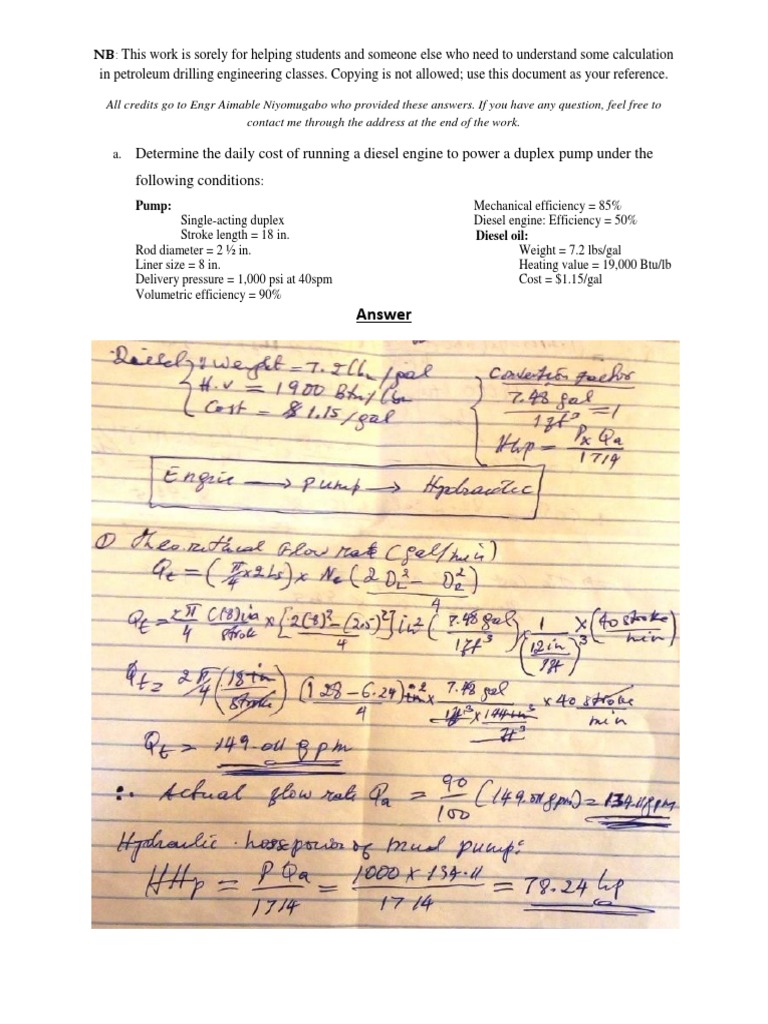 NB: This work is sorely for helping students and someone else who need to understand some calculation
in petroleum drilling engineering classes. Copying is not allowed; use this document as your reference.
All credits go to Engr Aimable Niyomugabo who provided these answers. If you have any question, feel free to
contact me through the address at the end of the work.
a. Determine the daily cost of running a diesel engine to power a duplex pump under the
following conditions:
Pump:
Single-acting duplex
Stroke length = 18 in.
Rod diameter = 2 ½ in.
Liner size = 8 in.
Delivery pressure = 1,000 psi at 40spm
Volumetric efficiency = 90%
Mechanical efficiency = 85%
Diesel engine: Efficiency = 50%
Diesel oil:
Weight = 7.2 lbs/gal
Heating value = 19,000 Btu/lb
Cost = $1.15/gal
Answer
weight = 7.2 lbm/gal
H.v = 1900 Btu/lbm
Cost = $1.15/gal
7.48 gal / 1ft³ = 1
HHp = P x Qa / 1714
Engine → pump → Hydraulic
① flow rate (gal/min)
Qt = (π/4 x 2Ls) x Nc (2DL² - DR²) / 4
Qt = 2π/4 (18)in/strok x [2(8)² - (2.5)²]in² / 4 (7.48 gal / 1ft³) 1 / (12in / 1ft)³ x (40 stroke / min)
Qt = 2 π/4 (18in / stroke) (128 - 6.24)in² / 4 x 7.48 gal / 1ft³ x 40 stroke / min
Qt = 149.011 gpm
∴ Actual flow rate Qa = 90/100 (149.011gpm) = 134.11gpm
Hydraulic horsepower of mud pump:
HHp = P Qa / 1714 = 1000 x 134.11 / 1714 = 78.24 hp